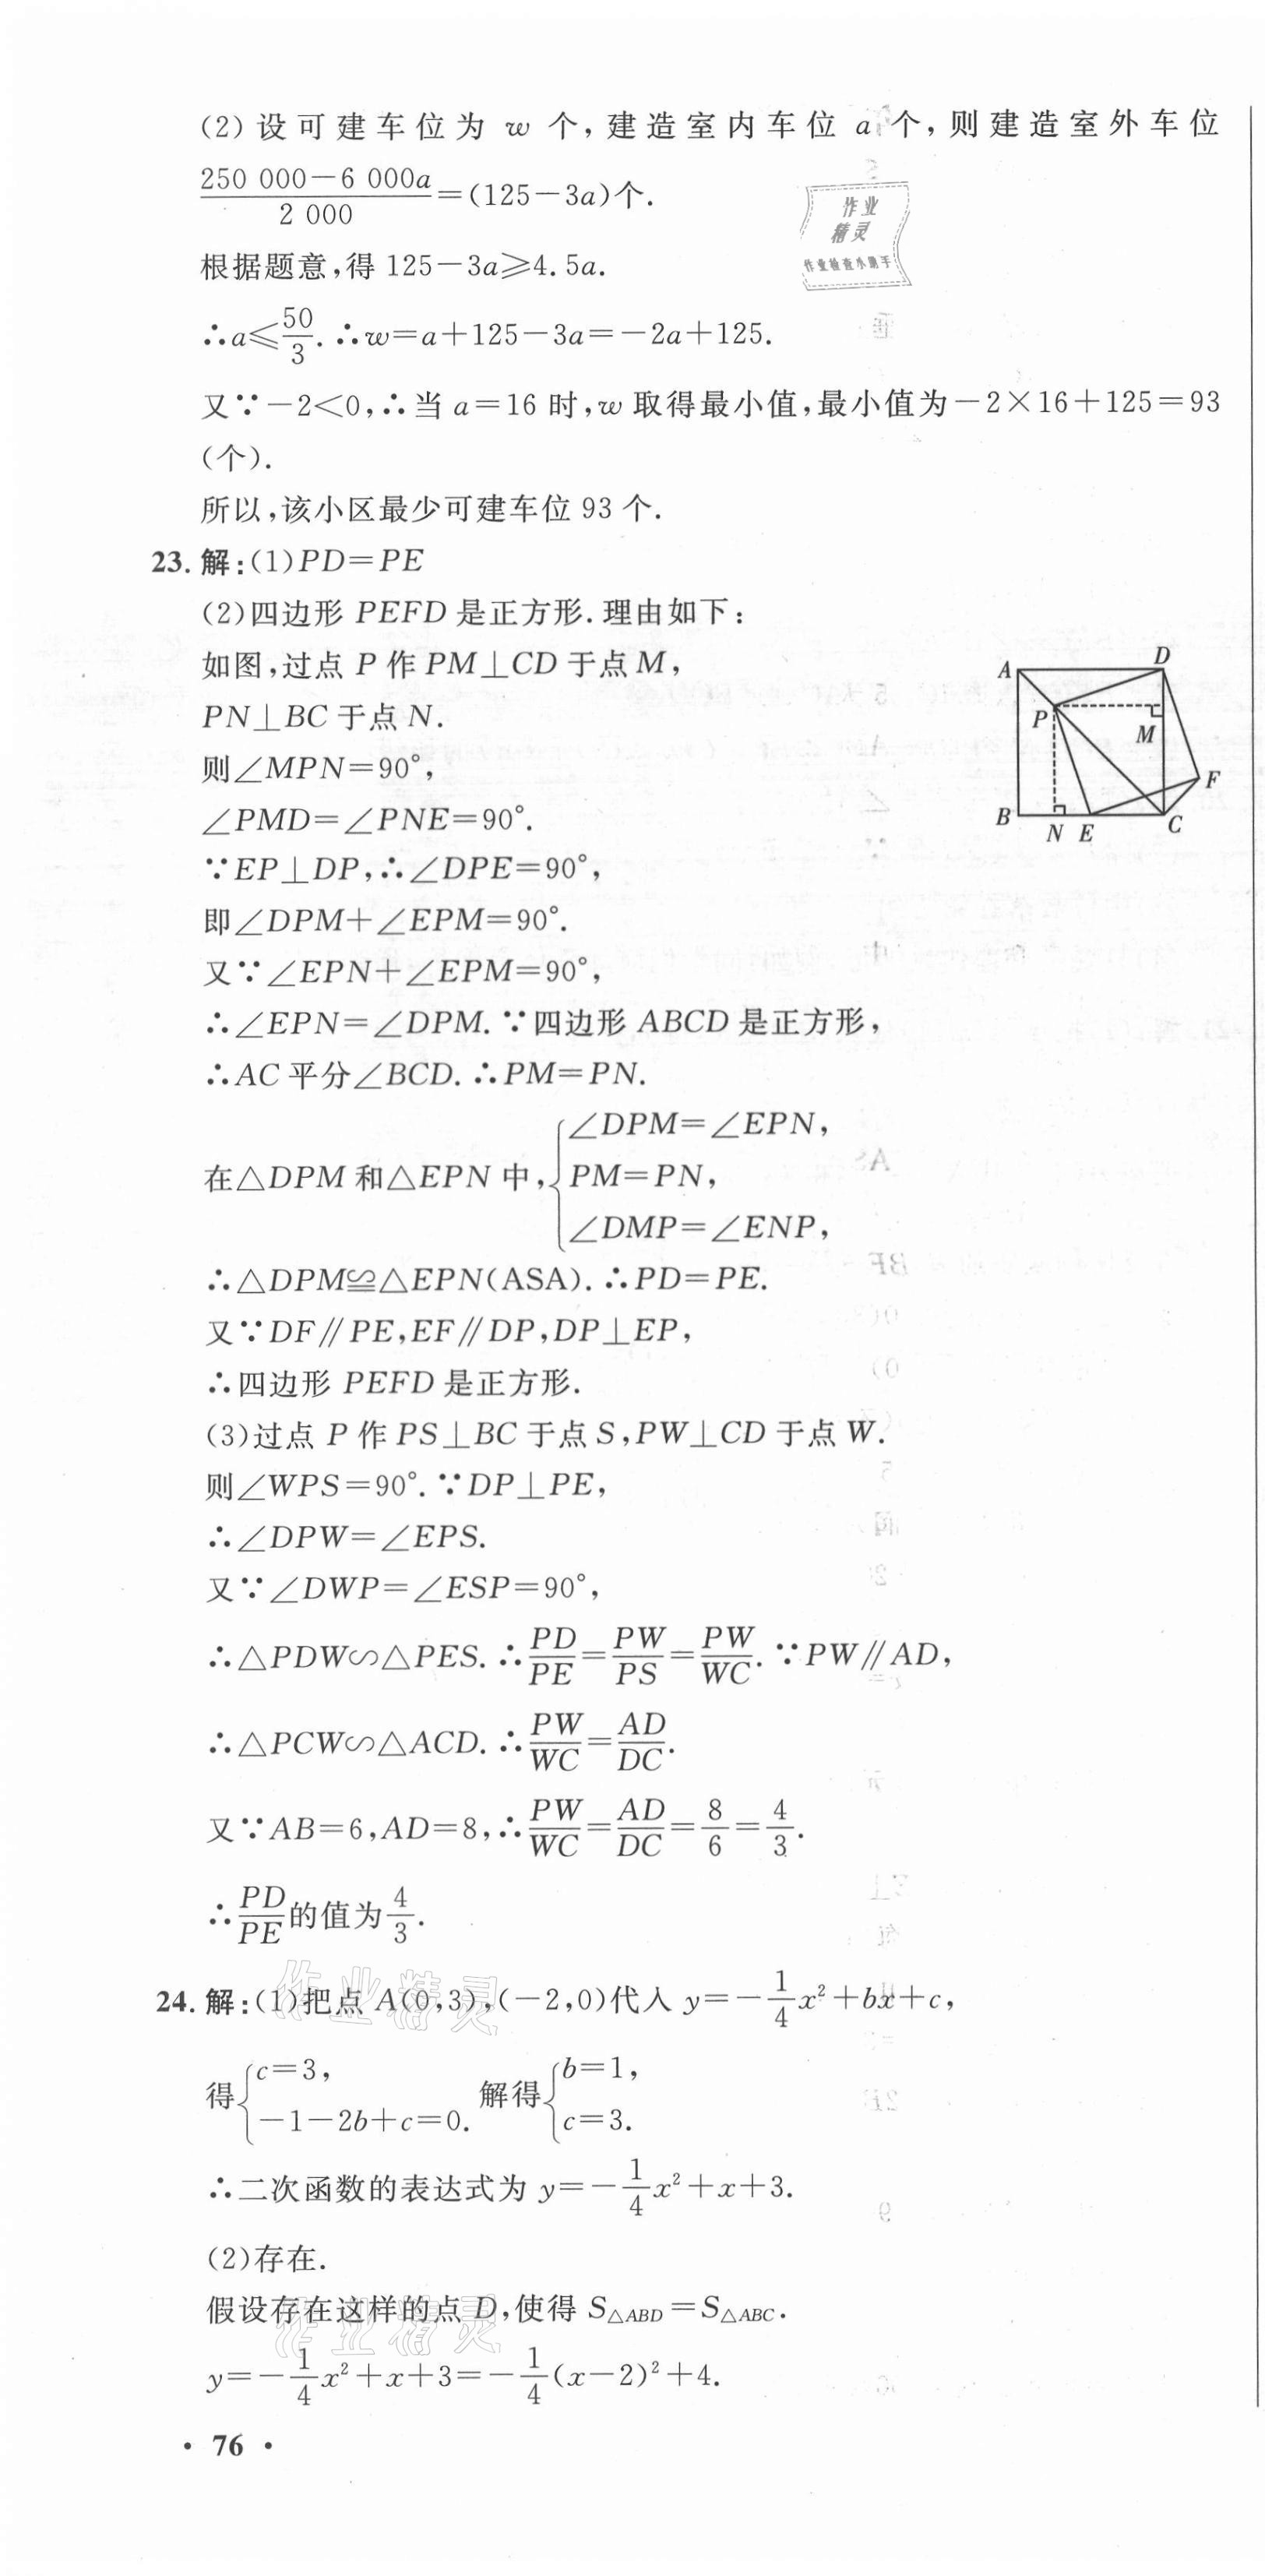 (2)设可建车位为 w 个,建造室内车位 a 个,则建造室外车位
(250 000−6 000a)/(2 000)=(125−3a)个.
作业
精灵
作业检查小助手
根据题意,得 125−3a≥4.5a.
∴a≤50/3.∴w=a+125−3a=−2a+125.
又∵−2<0,∴当 a=16 时,w 取得最小值,最小值为−2×16+125=93
(个).
所以,该小区最少可建车位 93 个.
23.解:(1)PD=PE
(2)四边形 PEFD 是正方形.理由如下:
如图,过点 P 作 PM⊥CD 于点 M,
PN⊥BC 于点 N.
则∠MPN=90°,
∠PMD=∠PNE=90°.
A D P M F B N E C
∵EP⊥DP,∴∠DPE=90°,
即∠DPM+∠EPM=90°.
又∵∠EPN+∠EPM=90°,
∴∠EPN=∠DPM.∵四边形 ABCD 是正方形,
∴AC 平分∠BCD.∴PM=PN.
在△DPM 和△EPN 中,{∠DPM=∠EPN,
PM=PN,
∠DMP=∠ENP,
∴△DPM≌△EPN(ASA).∴PD=PE.
又∵DF∥PE,EF∥DP,DP⊥EP,
∴四边形 PEFD 是正方形.
(3)过点 P 作 PS⊥BC 于点 S,PW⊥CD 于点 W.
则∠WPS=90°.∵DP⊥PE,
∴∠DPW=∠EPS.
又∵∠DWP=∠ESP=90°,
∴△PDW∽△PES.∴PD/PE=PW/PS=PW/WC.∵PW∥AD,
∴△PCW∽△ACD.∴PW/WC=AD/DC.
又∵AB=6,AD=8,∴PW/WC=AD/DC=8/6=4/3.
∴PD/PE的值为4/3.
作业精灵
24.解:(1)把点 A(0,3),(−2,0)代入 y=−1/4x²+bx+c,
得{c=3,
−1−2b+c=0.
解得{b=1,
c=3.
∴二次函数的表达式为 y=−1/4x²+x+3.
(2)存在.
假设存在这样的点 D,使得 S△ABD=S△ABC.
作业精灵
y=−1/4x²+x+3=−1/4(x−2)²+4.
· 76 ·